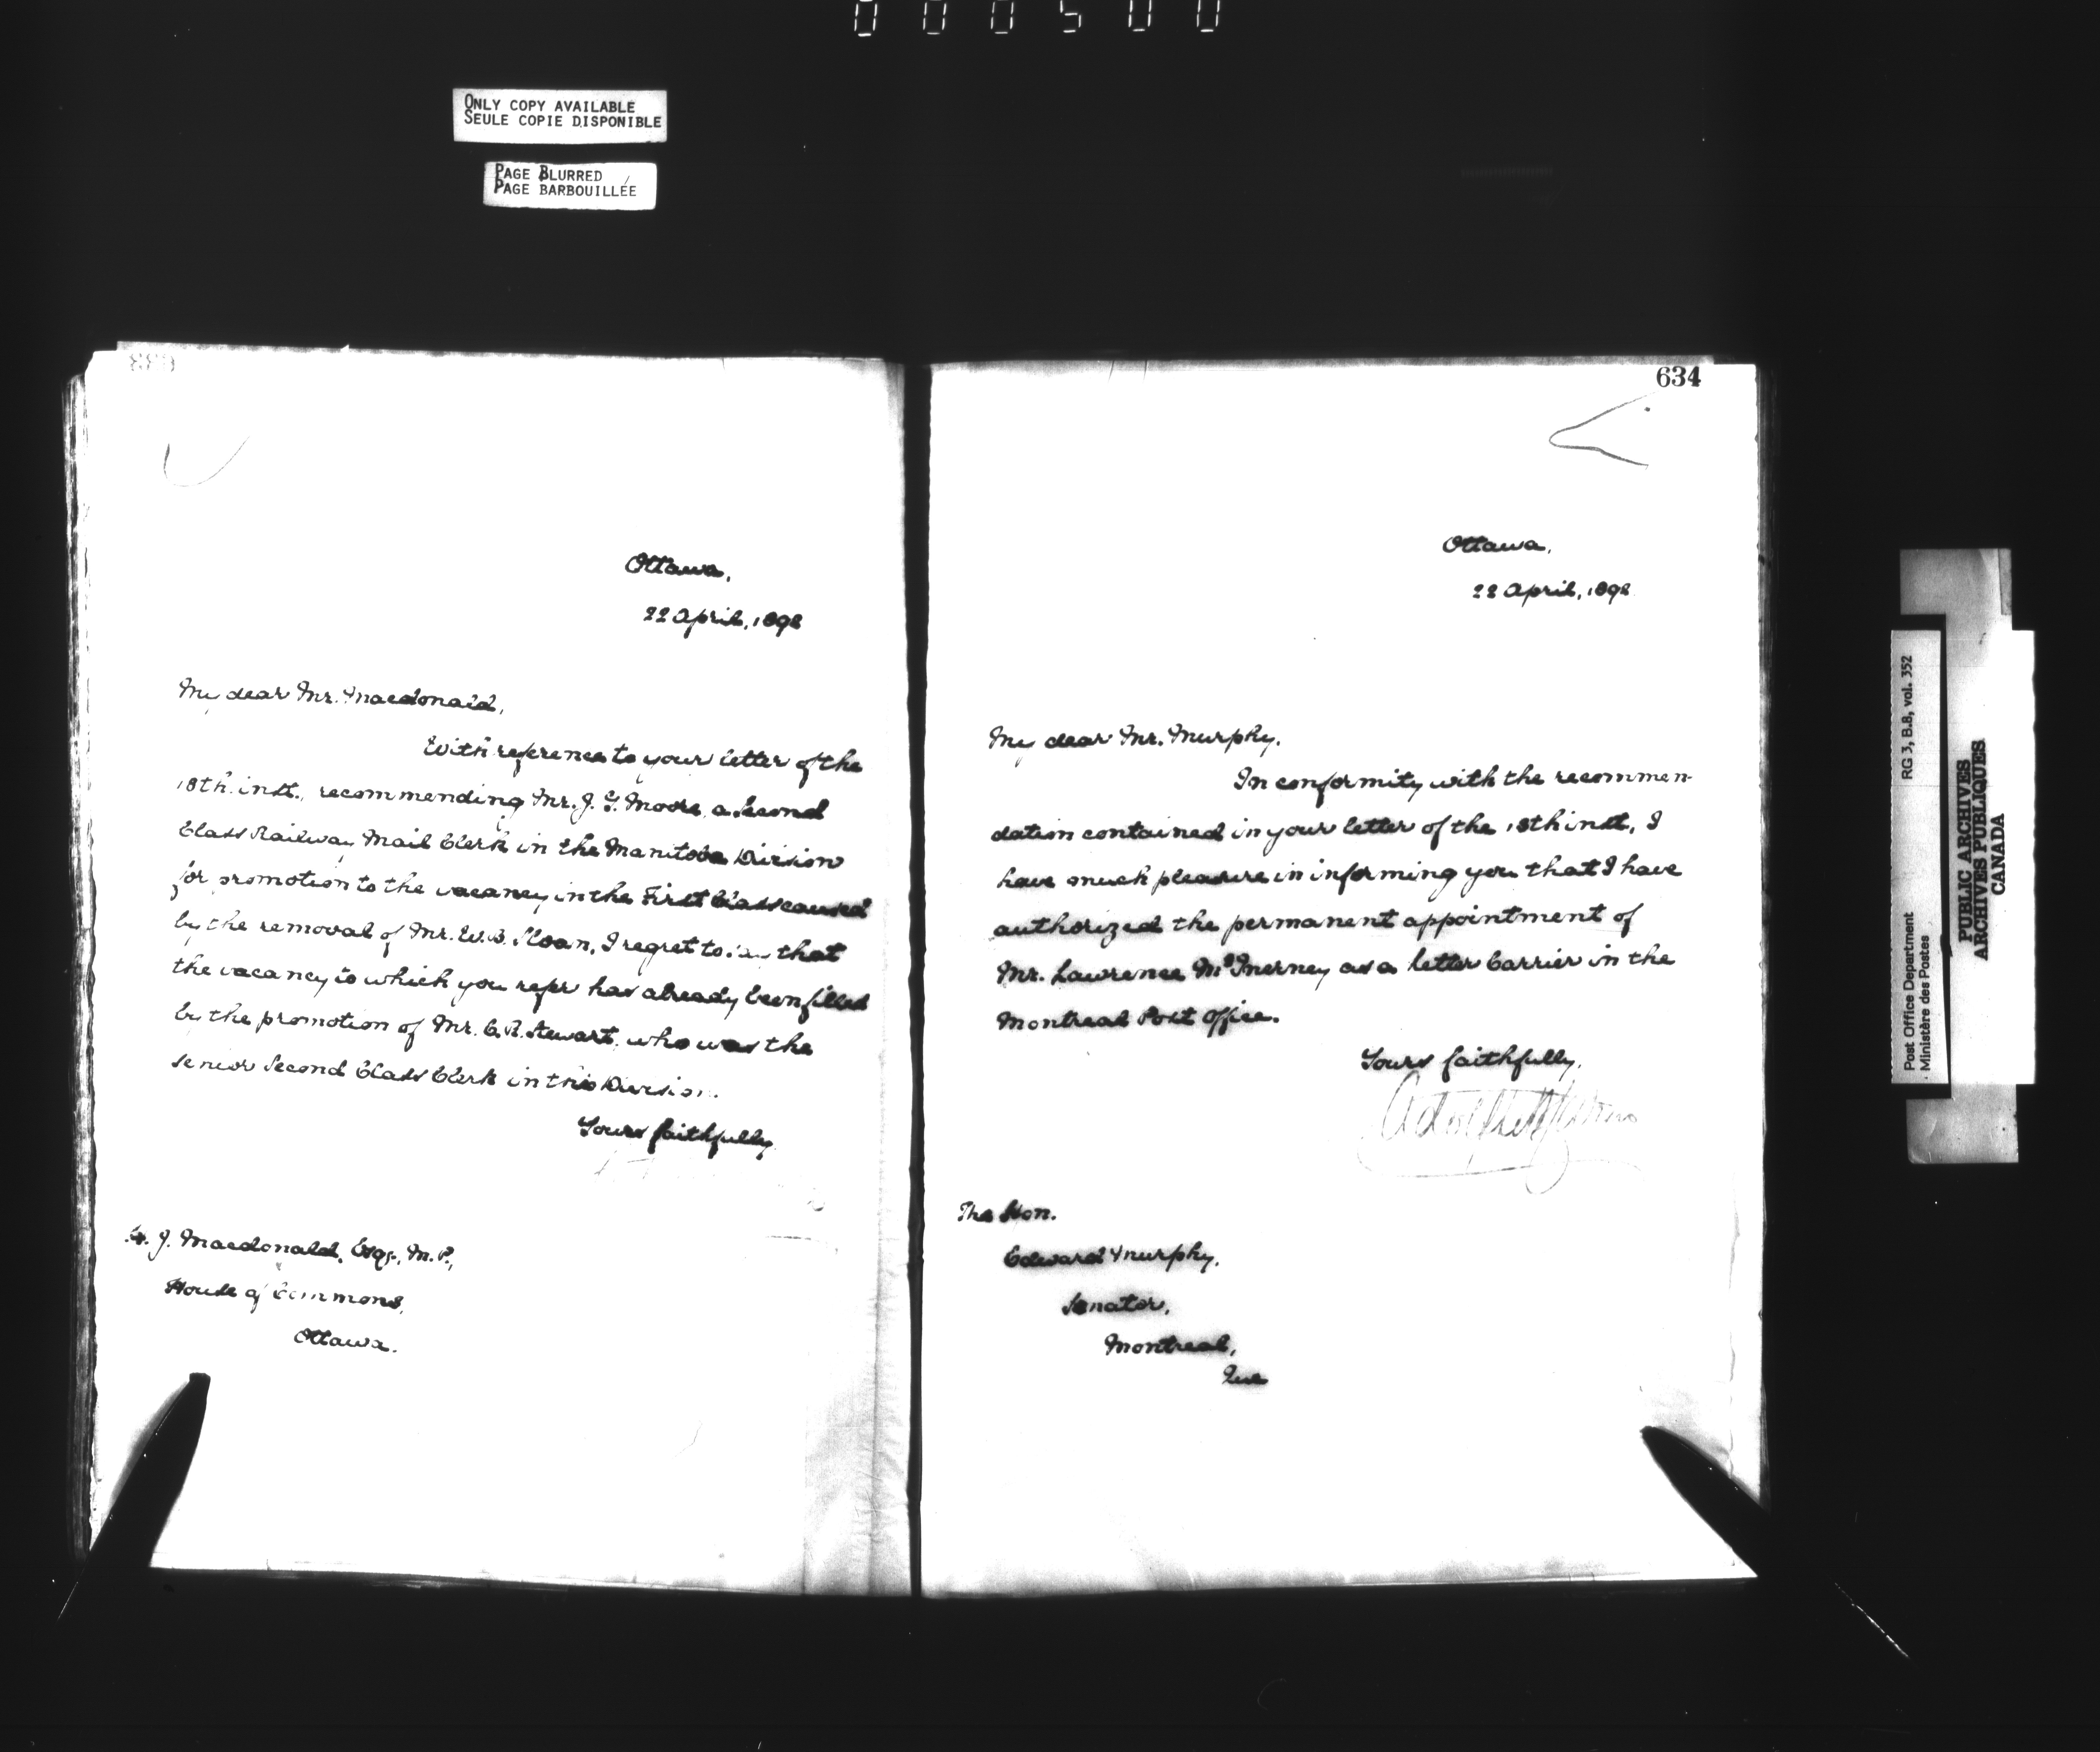 000500
ONLY COPY AVAILABLE
SEULE COPIE DISPONIBLE
PAGE BLURRED
PAGE BARBOUILLÉE
633
Ottawa,
22 April, 1892
My dear Mr. Macdonald,
With reference to your letter of the
18th. inst., recommending Mr. J. G. Moore, a Second
Class Railway Mail Clerk in the Manitoba Division
for promotion to the vacancy in the First Class caused
by the removal of Mr. W. B. Sloan, I regret to say that
the vacancy to which you refer has already been filled
by the promotion of Mr. C. R. Stewart, who was the
senior Second Class Clerk in this Division.
Yours faithfully
J. Macdonald, Esqr., M.P.,
House of Commons,
Ottawa.
634
Ottawa,
22 April, 1892
My dear Mr. Murphy,
In conformity with the recommen-
dation contained in your letter of the 18th inst, I
have much pleasure in informing you that I have
authorized the permanent appointment of
Mr. Lawrence McInerney as a letter Carrier in the
Montreal Post Office.
Yours faithfully,
The Hon.
Edward Murphy,
Senator,
Montreal,
Que
RG 3, B.8, vol. 352
Post Office Department
Ministère des Postes
PUBLIC ARCHIVES
ARCHIVES PUBLIQUES
CANADA